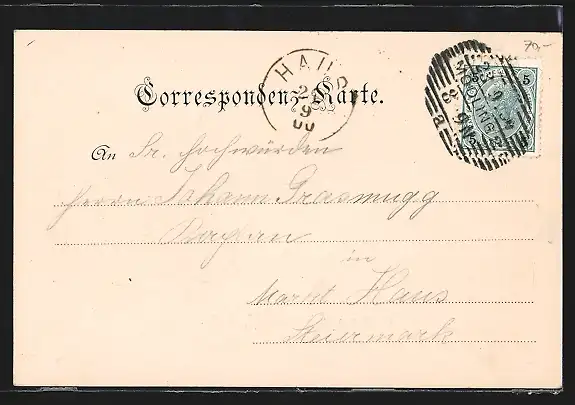 70,-
HAUS
2
9
00
5
Correspondenz-Karte.
An Sr. Hochwürden
Herrn Johann Grasmugg
in
Markt Haus
Steiermark